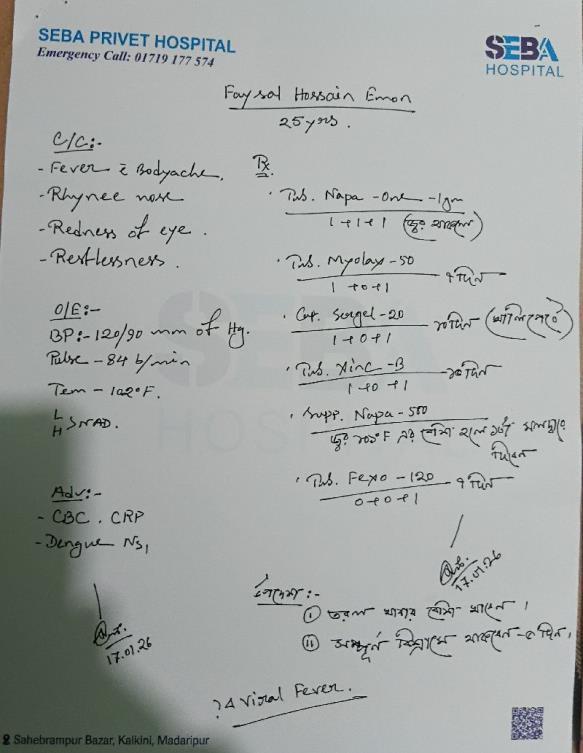 SEBA PRIVET HOSPITAL
Emergency Call: 01719 177 574
SEBA
HOSPITAL
Faysal Hossain Emon
25yrs.
C/C:-
- Fever c̄ Bodyache.
- Rhynee nose
- Redness of eye.
- Restlessness.
O/E:-
BP:- 120/90 mm of Hg.
Pulse - 84 b/min
Tem - 102°F.
L
H > NAD.
Adv:-
- CBC. CRP
- Dengue NS1
17.01.26
Rx
· Tab. Napa - One - 1gm
1+1+1 (জ্বর থাকলে)
· Tab. Myolax - 50
1+0+1 ৭ দিন
· Cap. Sergel - 20
1+0+1 ১০ দিন (খালি পেটে)
· Tab. Xinc - B
1+0+1 ১০ দিন
· Supp. Napa - 500
জ্বর ১০১°F এর বেশি হলে ১টি মলদ্বারে
দিবেন
· Tab. Fexo - 120
0+0+1 ৭ দিন
17.01.26
উপদেশ:-
i তরল খাবার বেশি খাবেন।
ii সম্পূর্ণ বিশ্রামে থাকবেন - ৫ দিন।
? Δ Viral Fever.
SEBA
HOSPITAL
Sahebrampur Bazar, Kalkini, Madaripur